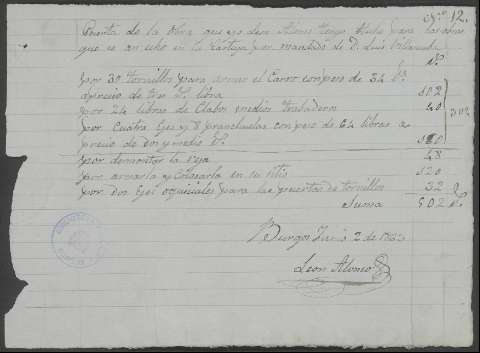 Nº 12.
Cuenta de la Obra que yo Leon Alonso tengo echa para las obras
que se an echo en la Cartuja por mandado de D. Luis Villanueba
Rˢ
por 30 tornillos para armar el Carro con peso de 34 lˢ
a precio de tres Rˢ libra 102
por 24 libras de Clabos medios trabaderos 40
por Cuatro Ejes y 8 planchuelas con peso de 64 libras a
precio de dos y medio Rˢ 160
302
por desmontar la Reja 48
por armarla y Colocarla en su sitio 120
por dos Ejes oficiales para las puertas de tornillos 32
Suma 502 Rˢ
Burgos Junio 2 de
Leon Alonso